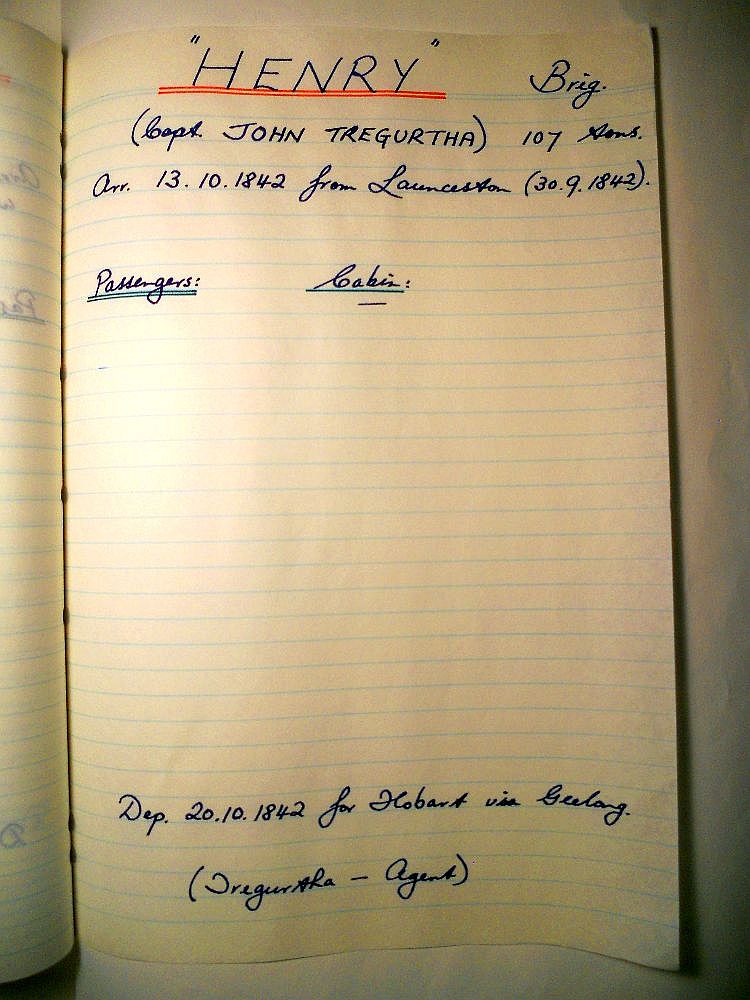 "HENRY" Brig.
(Capt. JOHN TREGURTHA) 107 tons.
Arr. 13.10.1842 from Launceston (30.9.1842).
Passengers: Cabin:
—
Dep. 20.10.1842 for Hobart via Geelong.
(Tregurtha — Agent)